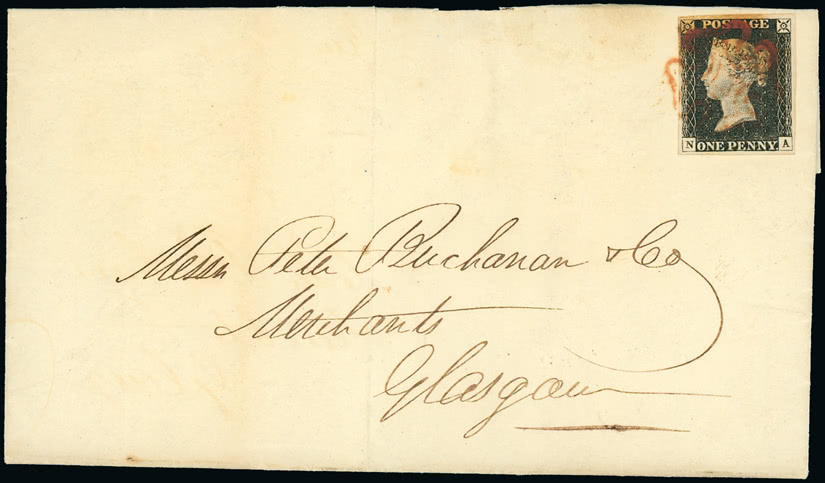 POSTAGE
N ONE PENNY A
Messrs Peter Buchanan & Co
Merchants
Glasgow